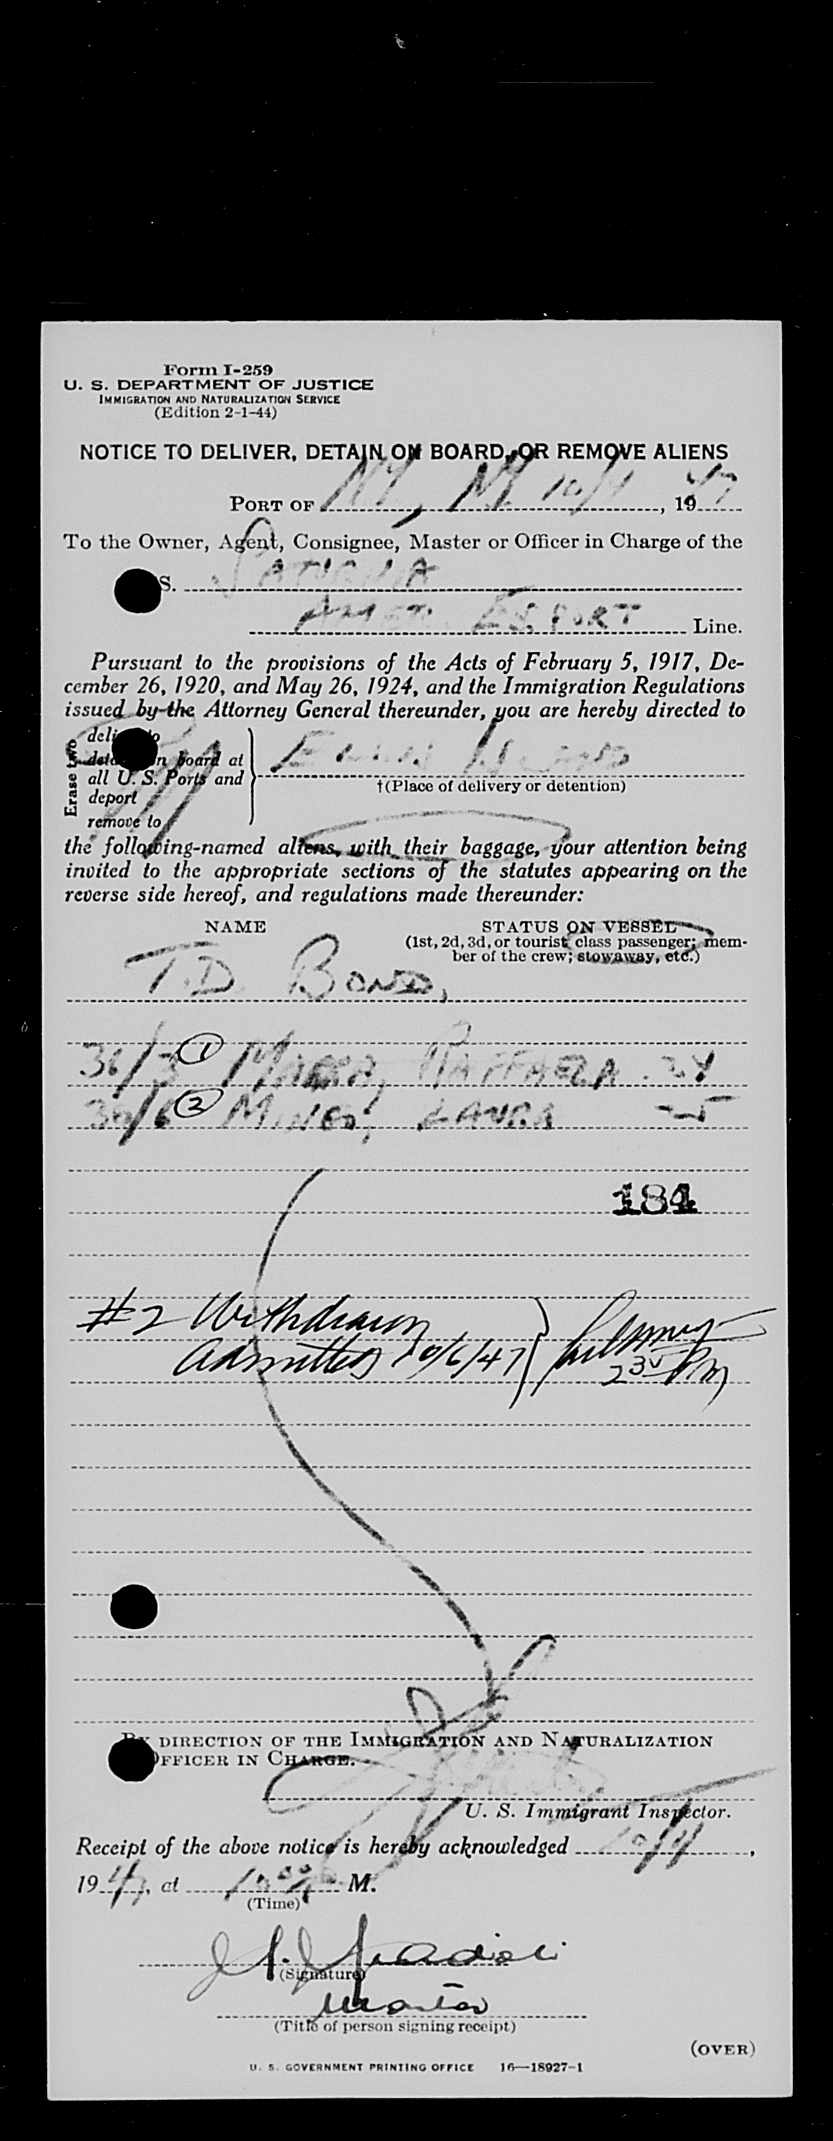 Form I-259
U. S. DEPARTMENT OF JUSTICE
IMMIGRATION AND NATURALIZATION SERVICE
(Edition 2-1-44)
NOTICE TO DELIVER, DETAIN ON BOARD, OR REMOVE ALIENS
PORT OF N.Y., N.Y. 10/4, 1947
To the Owner, Agent, Consignee, Master or Officer in Charge of the
S. SATURNIA
AMER. EXPORT Line.
Pursuant to the provisions of the Acts of February 5, 1917, De-
cember 26, 1920, and May 26, 1924, and the Immigration Regulations
issued by the Attorney General thereunder, you are hereby directed to
Erase two
deliver to
detain on board at
all U. S. Ports and
deport
remove to
ELLIS ISLAND
†(Place of delivery or detention)
the following-named aliens, with their baggage, your attention being
invited to the appropriate sections of the statutes appearing on the
reverse side hereof, and regulations made thereunder:
NAME STATUS ON VESSEL
(1st, 2d, 3d, or tourist class passenger; mem-
ber of the crew; stowaway, etc.)
T.D. BOND,
36/3 1 RAFFAELA
36/6 2 MINEO, LAURA
184
#2 Withdrawn
Admitted 10/6/47
2 30 PM
BY DIRECTION OF THE IMMIGRATION AND NATURALIZATION
OFFICER IN CHARGE.
U. S. Immigrant Inspector.
Receipt of the above notice is hereby acknowledged 10/4,
1947, at M.
(Time)
(Signature)
Master
(Title of person signing receipt)
(OVER)
U. S. GOVERNMENT PRINTING OFFICE 16—18927-1